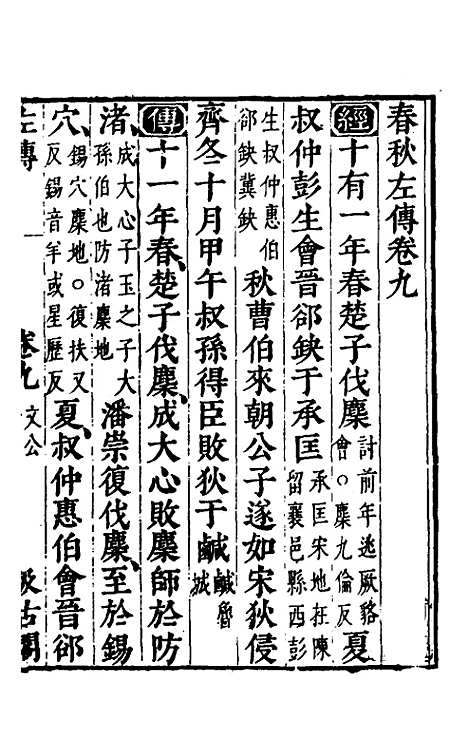 春秋左傳卷九
經十有一年春楚子伐麇討前年逃厥貉會○麇九倫反夏
叔仲彭生會晉郤缺于承匡承匡宋地在陳留襄邑縣西彭
生叔仲惠伯郤缺冀缺秋曹伯來朝公子遂如宋狄侵
齊冬十月甲午叔孫得臣敗狄于鹹鹹魯地
傳十一年春楚子伐麇成大心敗麇師於防
渚成大心子玉之子大孫伯也防渚麇地潘崇復伐麇至於錫
穴錫穴麇地○復扶又反錫音羊或星歷反夏叔仲惠伯會晉郤
左傳 一 卷九 文公 汲古閣